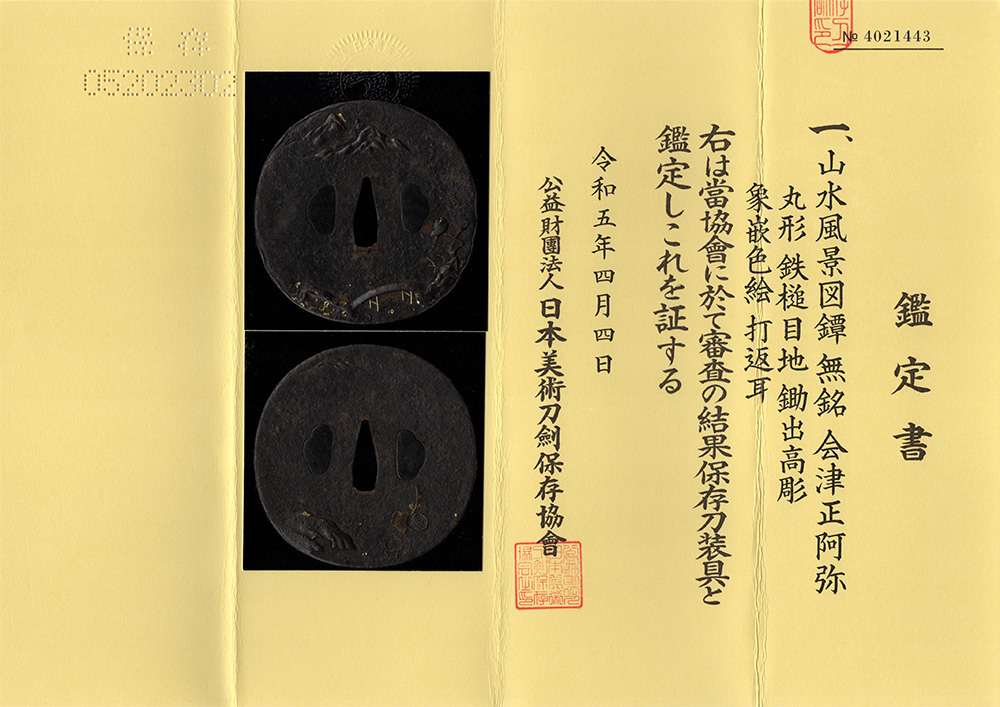 鑑定書
№ 4021443
一、山水風景図鐔 無銘 会津正阿弥
丸形 鉄槌目地 鋤出高彫
象嵌色絵 打返耳
右は當協會に於て審査の結果保存刀装具と
鑑定しこれを証する
令和五年四月四日
公益財團法人 日本美術刀劍保存協會
保存
05202302